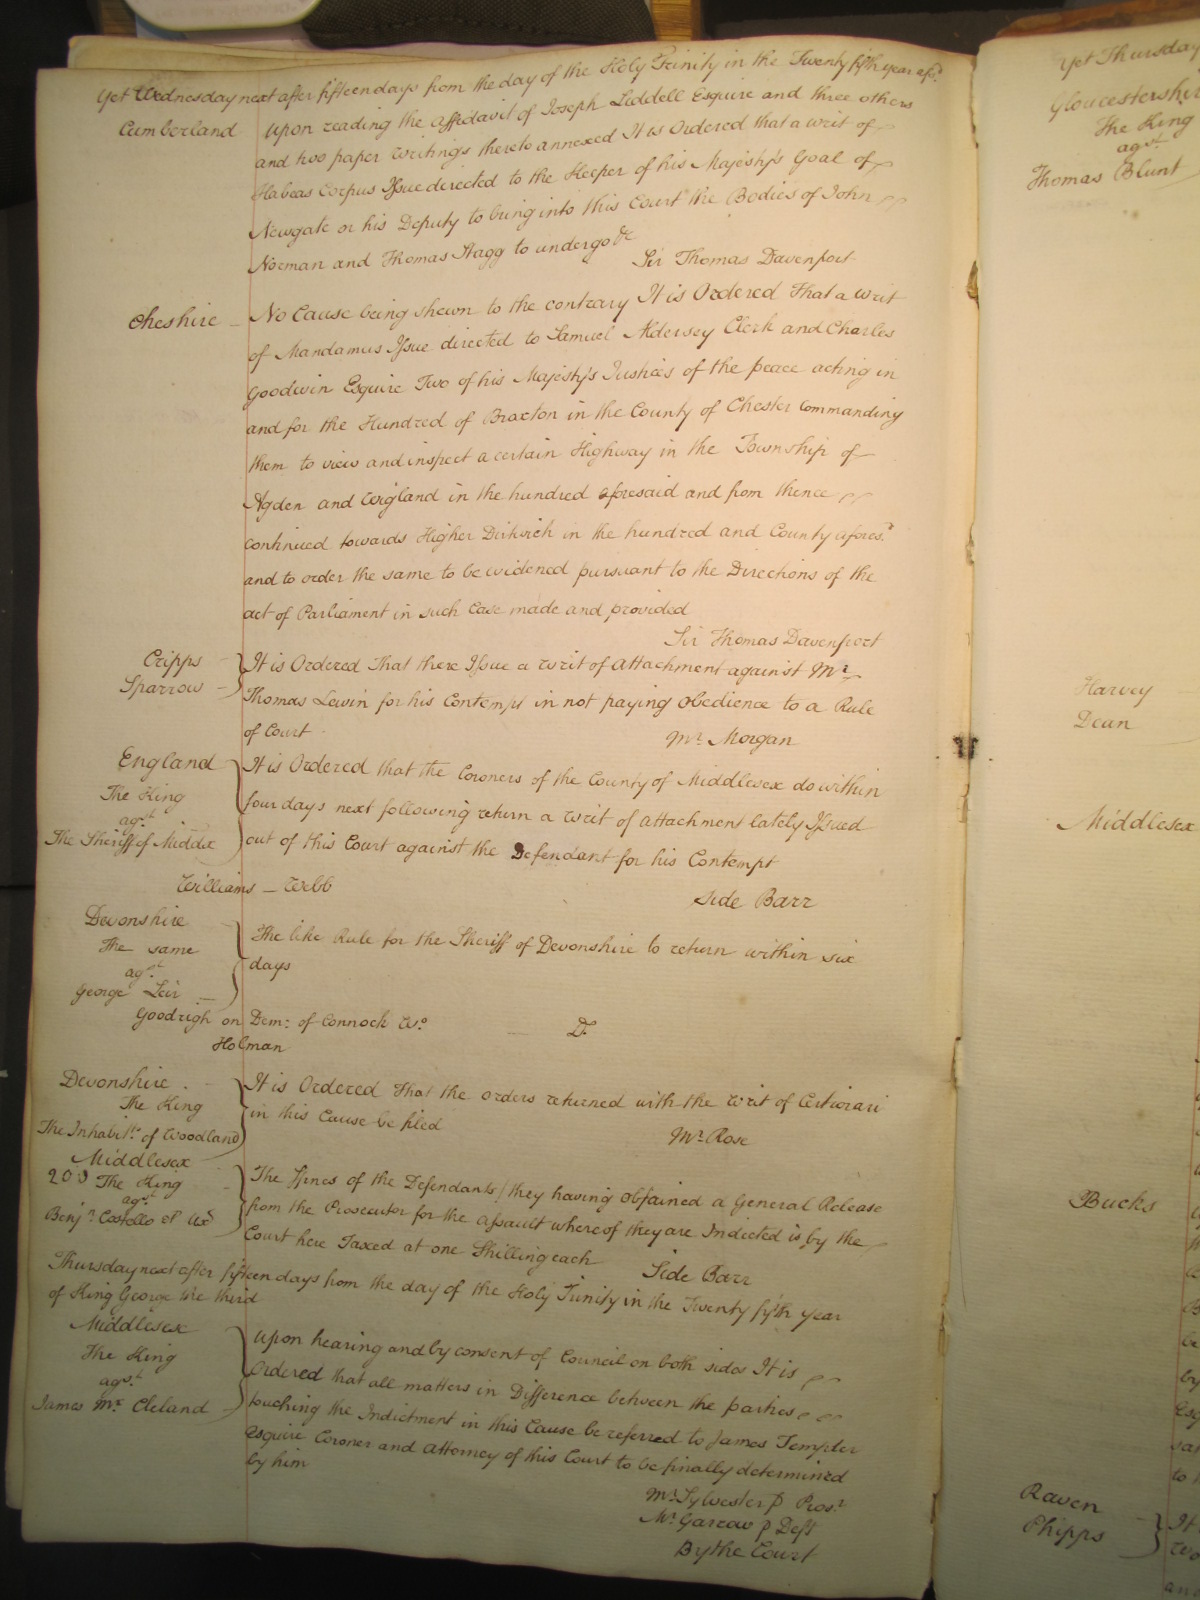 Yet Wednesday next after fifteen days from the day of the Holy Trinity in the Twenty fifth year afsd.
Cumberland Upon reading the Affidavit of Joseph Liddell Esquire and three others
and two paper writings thereto annexed It is Ordered that a writ of
Habeas Corpus Issue directed to the Keeper of his Majesty's Goal of
Newgate or his Deputy to bring into this Court the Bodies of John
Norman and Thomas Stagg to undergo &c
Sir Thomas Davenport
Cheshire No Cause being shewn to the contrary It is Ordered That a writ
of Mandamus Issue directed to Samuel Aldersey Clerk and Charles
Goodwin Esquire Two of his Majesty's Justices of the peace acting in
and for the Hundred of Broxton in the County of Chester Commanding
them to view and inspect a certain Highway in the Township of
Agden and Wigland in the hundred aforesaid and from thence
continued towards Higher Dirtwich in the hundred and County afores.d
and to order the same to be widened pursuant to the Directions of the
act of Parliament in such Case made and provided
Sir Thomas Davenport
Cripps
Sparrow
It is Ordered That there Issue a writ of Attachment against Mr.
Thomas Lewin for his Contempt in not paying obedience to a Rule
of Court
Mr. Morgan
England
The King
agst.
The Sheriff of Middx
It is Ordered that the Coroners of the County of Middlesex do within
four days next following return a writ of attachment lately Issued
out of this Court against the Defendant for his Contempt
Williams – Webb
Side Barr
Devonshire
The same
agst.
George Leir
The like Rule for the Sheriff of Devonshire to return within six
days
Goodrigh on Dem: of Connock Wo.
Holman
Do.
Devonshire
The King
The Inhabits. of Woodland
It is Ordered That the orders returned with the writ of Certiorari
in this Cause be filed
Mr. Rose
Middlesex
200 The King
agst.
Benjn. Costello et Uxr
The Fines of the Defendants / they having obtained a General Release
from the Prosecutor for the assault whereof they are Indicted is by the
Court here Taxed at one Shilling each
Side Barr
Thursday next after fifteen days from the day of the Holy Trinity in the Twenty fifth year
of King George the third
Middlesex
The King
agst.
James Mc. Cleland
Upon hearing and by consent of Council on both sides It is
Ordered that all matters in Difference between the parties
touching the Indictment in this Cause be referred to James Templer
Esquire Coroner and Attorney of this Court to be finally determined
by him
Mr. Sylvester p Pros.r
Mr. Garrow p Deft
By the Court
Yet Thursday
Gloucestershir
The King
agst.
Thomas Blunt
Harvey
Dean
Middlesex
Bucks
Raven
Phipps